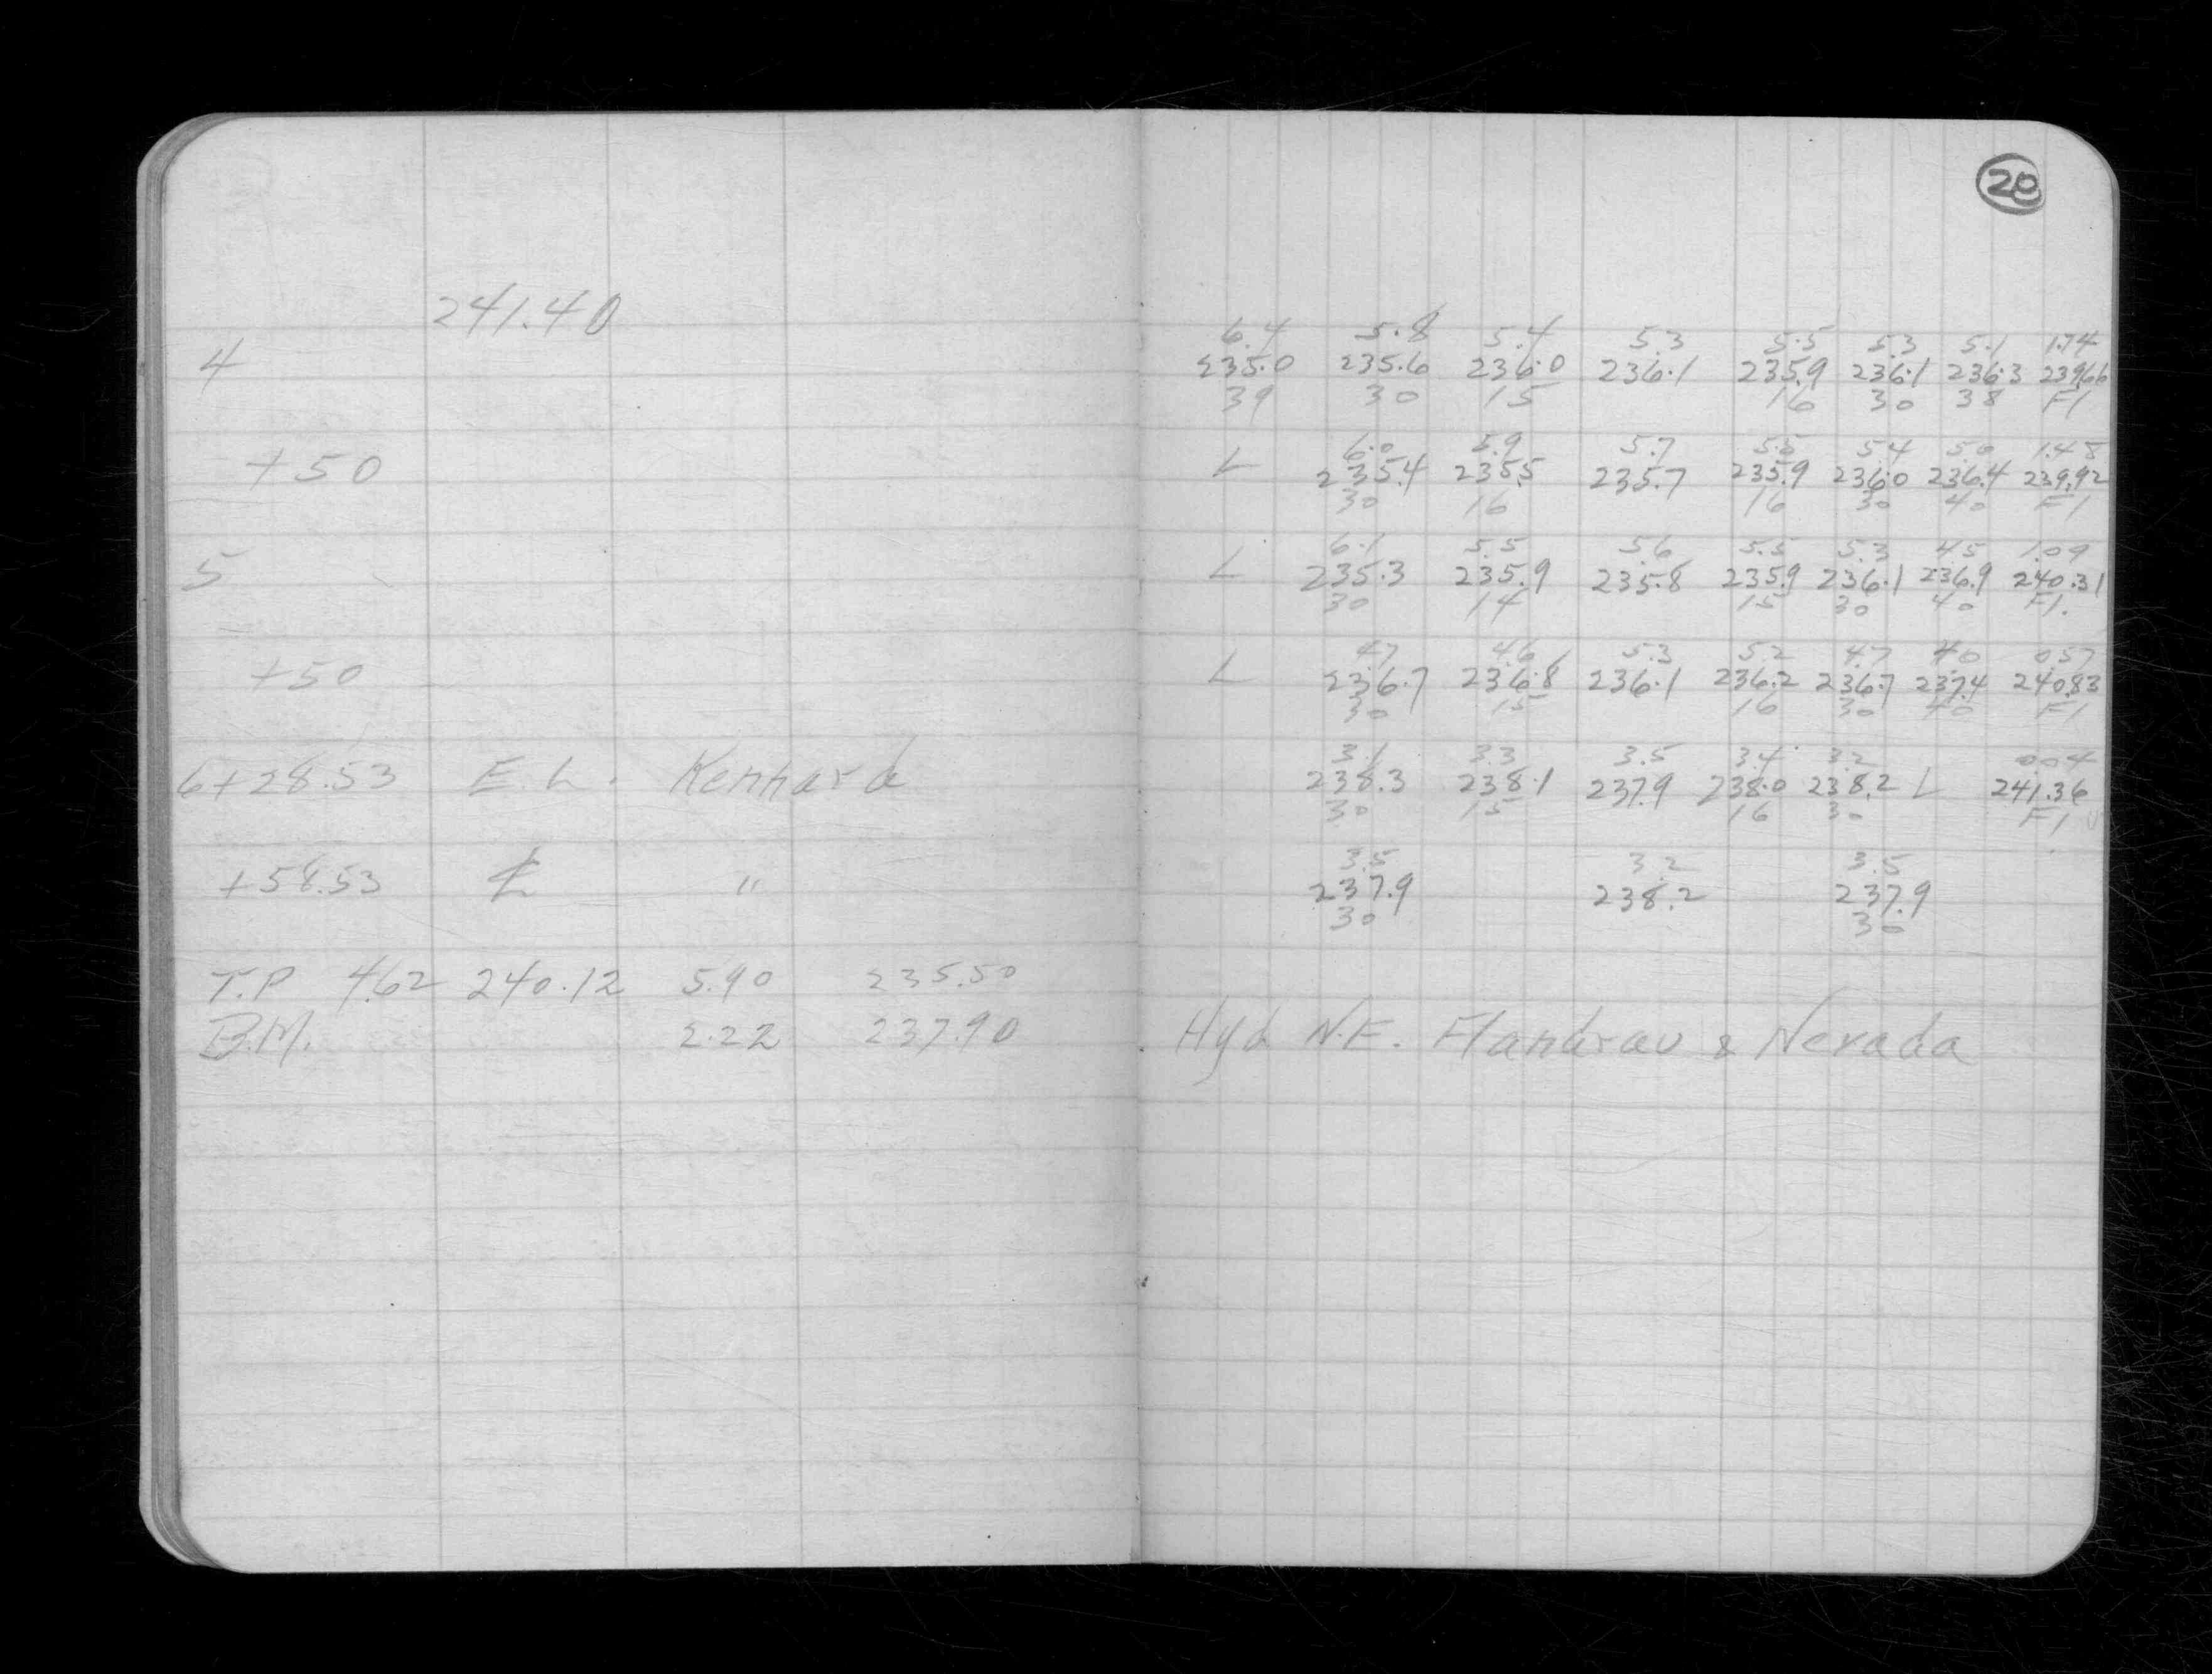 20
241.40
6.4 5.8 5.4 5.3 5.5 5.3 5.1 1.74
4 235.0 235.6 236.0 236.1 235.9 236.1 236.3 239.66
39 30 15 16 30 38 Fl
6.0 5.9 5.7 5.5 5.4 5.0 1.48
+50 L 235.4 235.5 235.7 235.9 236.0 236.4 239.92
30 16 16 30 40 Fl
6.1 5.5 5.6 5.5 5.3 4.5 1.09
5 L 235.3 235.9 235.8 235.9 236.1 236.9 240.31
30 14 15 30 40 Fl.
4.7 4.6 5.3 5.2 4.7 4.0 0.57
+50 L 236.7 236.8 236.1 236.2 236.7 237.4 240.83
30 15 16 30 40 Fl
3.1 3.3 3.5 3.4 3.2 0.04
6+28.53 E.L. Kenhard 238.3 238.1 237.9 238.0 238.2 L 241.36
30 15 16 30 Fl
3.5 3.2 3.5
+58.53 ℄ " 237.9 238.2 237.9
30 30
T.P 4.62 240.12 5.90 235.50
B.M. 2.22 237.90 Hyd N.E. Flandrau & Nevada